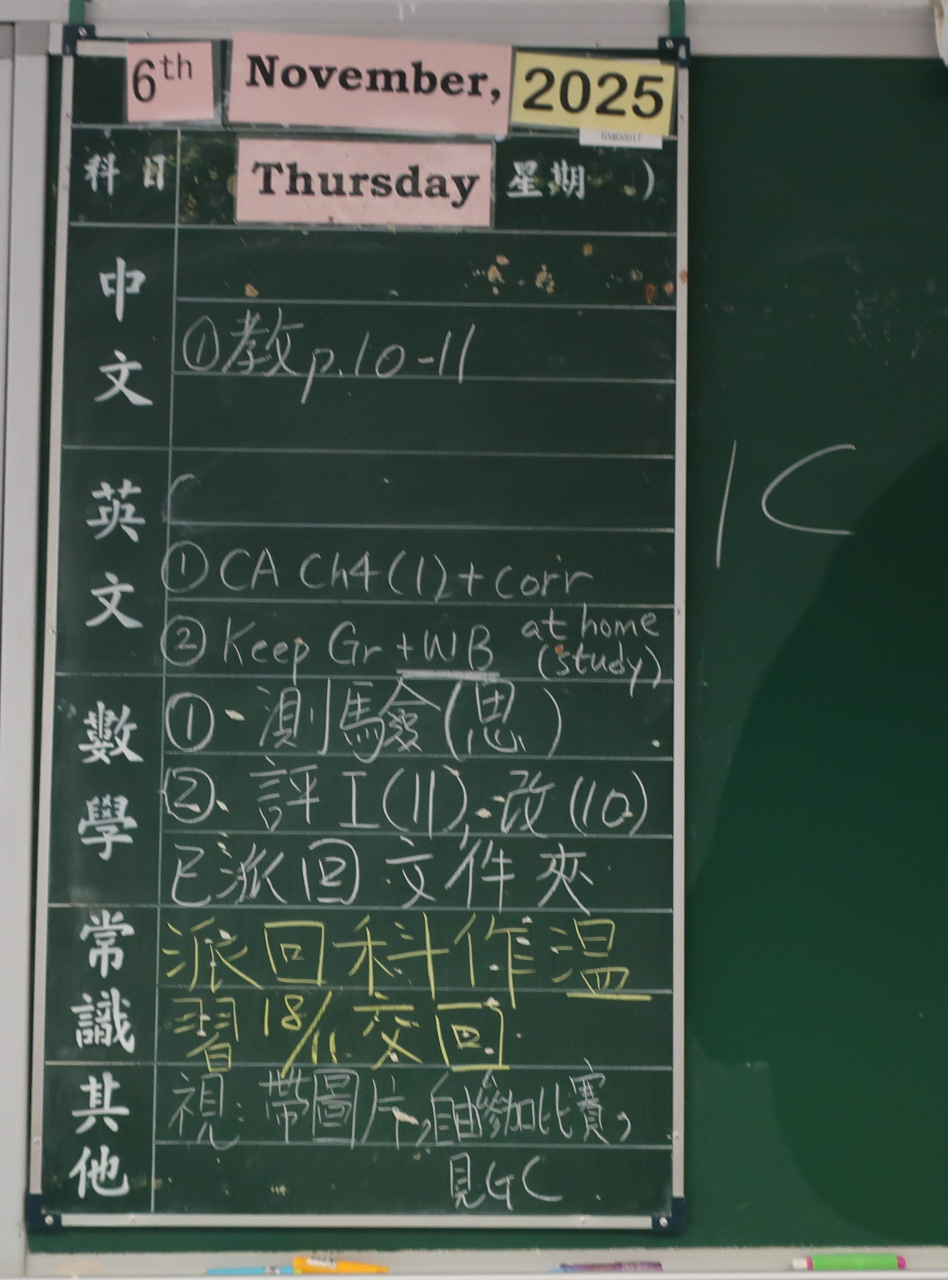 6th November, 2025
科目 Thursday 星期 )
中文
①教p.10-11
英文
①CA Ch4(1)+corr
②Keep Gr+WB at home (study)
數學
①、測驗(思)
②、評工(11),改(10)
已派回文件夾
常識
派回科作溫
習18/11交回
其他
視:帶圖片,自由參加比賽,
見GC
1C